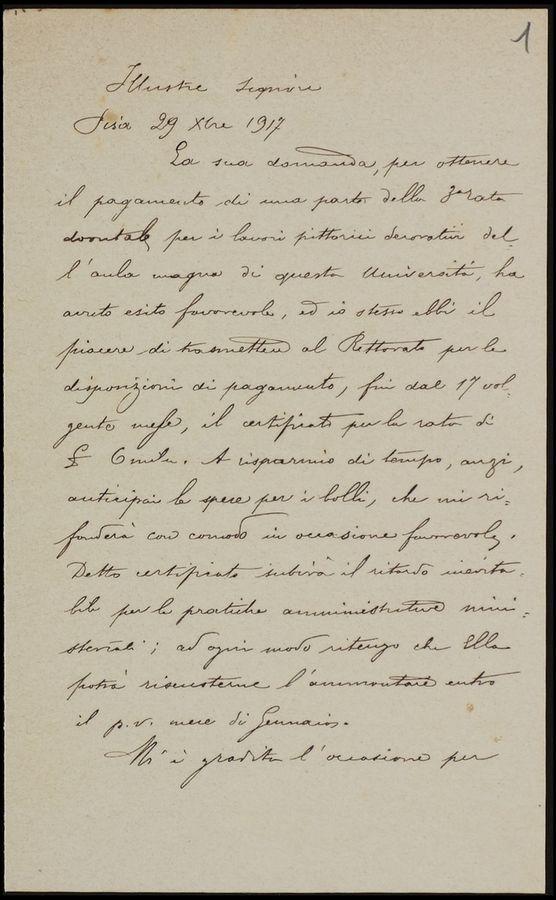 1
Illustre Signore
Pisa 29 Xbre 1917
La sua domanda, per ottenere
il pagamento di una parte della 3ª rata
per i lavori pittorici decorativi del-
l'aula magna di questa Università, ha
avuto esito favorevole, ed io stesso ebbi il
piacere di trasmettere al Rettorato per le
disposizioni di pagamento, fin dal 17 vol-
gente mese, il certificato per la rata di
£ 6 mila. A risparmio di tempo, anzi,
anticipai le spese per i bolli, che mi ri=
fonderà con comodo in occasione favorevole.
Detto certificato subirà il ritardo inevita-
bile per le pratiche amministrative mini=
steriali; ad ogni modo ritengo che Ella
potrà riscuoterne l'ammontare entro
il p.v. mese di Gennaio.
M'è gradita l'occasione per